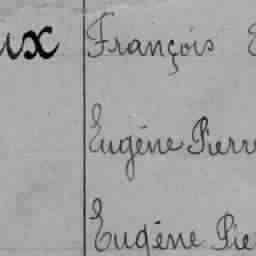 ux François
Eugéne Pierre
Eugéne Pie